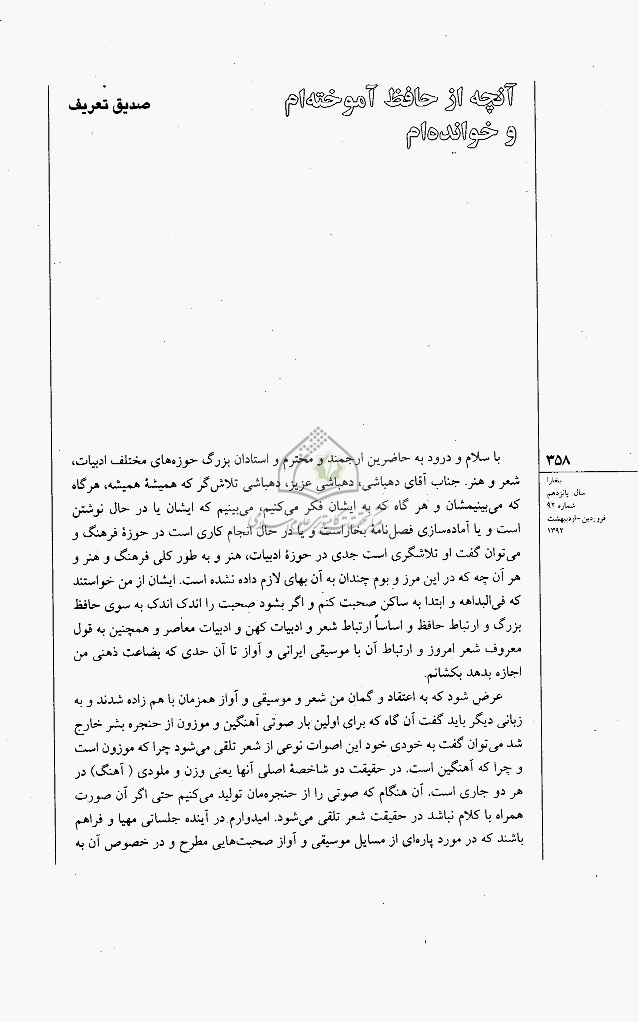 آنچه از حافظ آموخته‌ام
و خوانده‌ام
صدیق تعریف
۳۵۸
بخارا
سال پانزدهم
شماره ۹۲
فروردین-اردیبهشت
۱۳۹۲
با سلام و درود به حاضرین ارجمند و محترم و استادان بزرگ حوزه‌های مختلف ادبیات،
شعر و هنر. جناب آقای دهباشی، دهباشی عزیز، دهباشی تلاش‌گر که همیشۀ همیشه، هرگاه
که می‌بینیمشان و هر گاه که به ایشان فکر می‌کنیم، می‌بینیم که ایشان یا در حال نوشتن
است و یا آماده‌سازی فصل‌نامۀ بخاراست و یا در حال انجام کاری است در حوزۀ فرهنگ و
می‌توان گفت او تلاشگری است جدی در حوزۀ ادبیات، هنر و به طور کلی فرهنگ و هنر و
هر آن چه که در این مرز و بوم چندان به آن بهای لازم داده نشده است. ایشان از من خواستند
که فی‌البداهه و ابتدا به ساکن صحبت کنم و اگر بشود صحبت را اندک اندک به سوی حافظ
بزرگ و ارتباط حافظ و اساساً ارتباط شعر و ادبیات کهن و ادبیات معاصر و همچنین به قول
معروف شعر امروز و ارتباط آن با موسیقی ایرانی و آواز تا آن حدی که بضاعت ذهنی من
اجازه بدهد بکشانم.
عرض شود که به اعتقاد و گمان من شعر و موسیقی و آواز همزمان با هم زاده شدند و به
زبانی دیگر باید گفت آن گاه که برای اولین بار صوتی آهنگین و موزون از حنجره بشر خارج
شد می‌توان گفت به خودی خود این اصوات نوعی از شعر تلقی می‌شود چرا که موزون است
و چرا که آهنگین است. در حقیقت دو شاخصۀ اصلی آنها یعنی وزن و ملودی ( آهنگ) در
هر دو جاری است. آن هنگام که صوتی را از حنجره‌مان تولید می‌کنیم حتی اگر آن صورت
همراه با کلام نباشد در حقیقت شعر تلقی می‌شود. امیدوارم در آینده جلساتی مهیا و فراهم
باشند که در مورد پاره‌ای از مسایل موسیقی و آواز صحبت‌هایی مطرح و در خصوص آن به